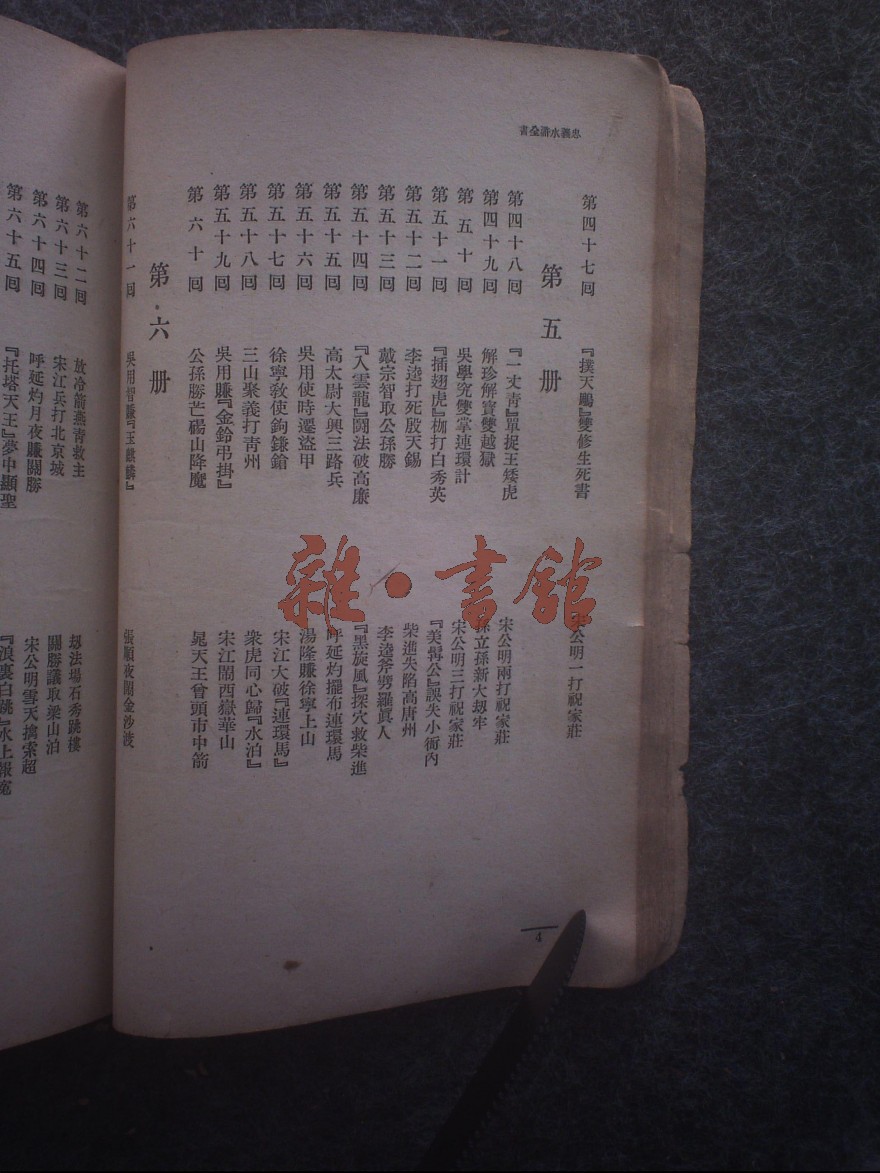 忠義水滸全書
第四十七回 『撲天鵰』雙修生死書 宋公明一打祝家莊
第五册
第四十八回 『一丈青』單捉王矮虎 宋公明兩打祝家莊
第四十九回 解珍解寶雙越獄 孫立孫新大刼牢
第五十回 吳學究雙掌連環計 宋公明三打祝家莊
第五十一回 『插翅虎』枷打白秀英 『美髯公』誤失小衙內
第五十二回 李逵打死殷天錫 柴進失陷高唐州
第五十三回 戴宗智取公孫勝 李逵斧劈羅眞人
第五十四回 『入雲龍』鬬法破高廉 『黑旋風』探穴救柴進
第五十五回 高太尉大興三路兵 呼延灼擺布連環馬
第五十六回 吳用使時遷盜甲 湯隆賺徐寧上山
第五十七回 徐寧敎使鉤鎌鎗 宋江大破『連環馬』
第五十八回 三山聚義打青州 衆虎同心歸『水泊』
第五十九回 吳用賺『金鈴弔掛』 宋江鬧西嶽華山
第六十回 公孫勝芒碭山降魔 晁天王曾頭市中箭
第六册
第六十一回 吳用智賺『玉麒麟』 張順夜鬧金沙渡
4
第六十二回 放冷箭燕青救主 刼法場石秀跳樓
第六十三回 宋江兵打北京城 關勝議取梁山泊
第六十四回 呼延灼月夜賺關勝 宋公明雪天擒索超
第六十五回 『托塔天王』夢中顯聖 『浪裏白跳』水上報寃
雜·書館